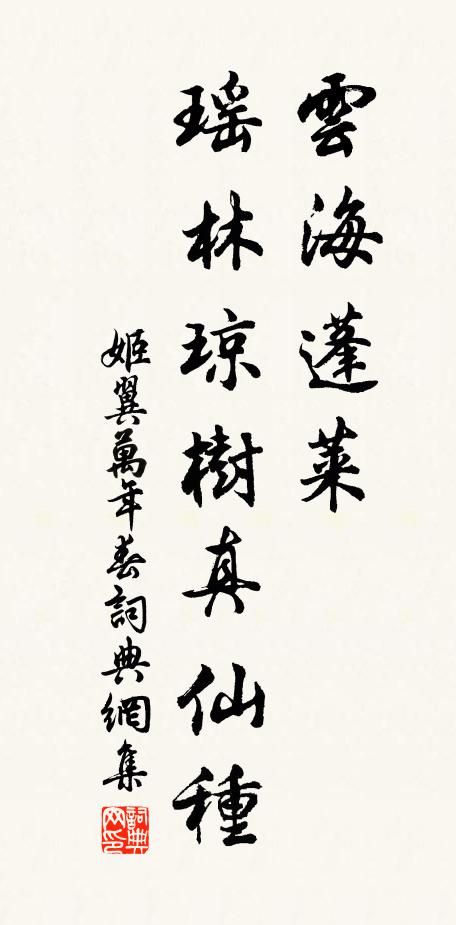 雲海蓬莱
瑶林琼樹真仙種
姬翼萬年春詞典網集
詞典网印